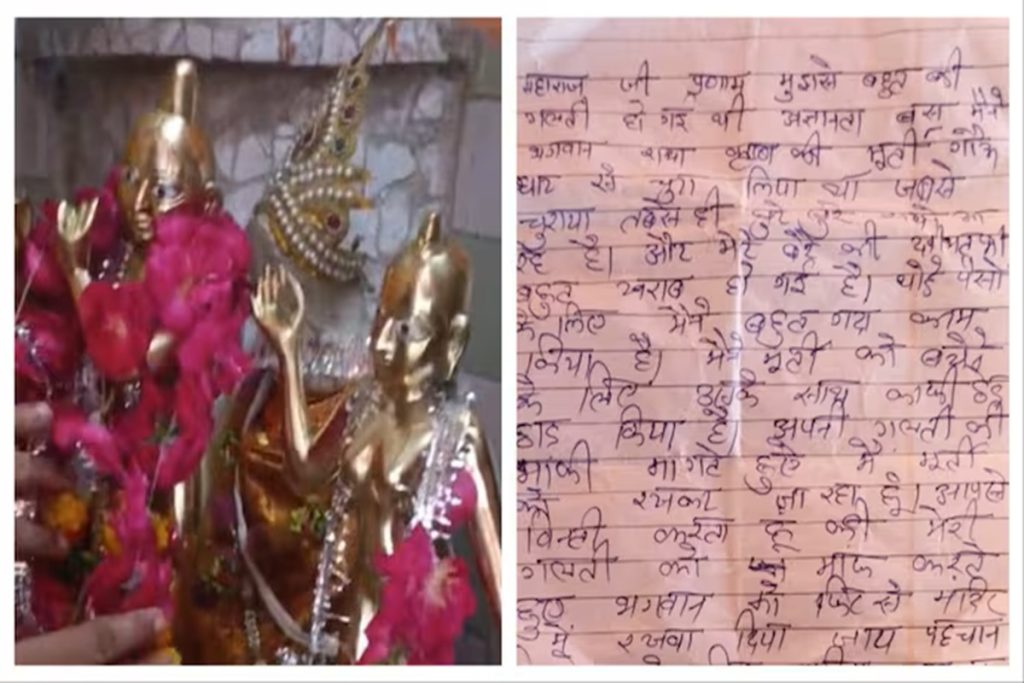 महाराज जी प्रणाम मुझसे बहुत की
गलती हो गई थी अज्ञानता बस मैने
भगवान राधा कृष्ण की मूर्ती गौऊ
घाट से चुरा लिया था जबसे
चुराया तबसे ही बुरे
रहे है। और मेरे बेटे की
बहुत खराब हो गई है। थोडे पैसो
के लिए मैने बहुत गन्दा काम
किया है। मैने मूर्ती को बेचने
के लिए उसके साथ काफी छेड़
छाड किया है अपनी गलती की
माफी मागते हुए मै मूर्ती
को रखकर जा रहा हूं। आपसे
विन्ती करता हू की मेरी
गलती को माफ करते
हुए भगवान को फिर से मंदिर
मूं रखवा दिया जाय पहचान